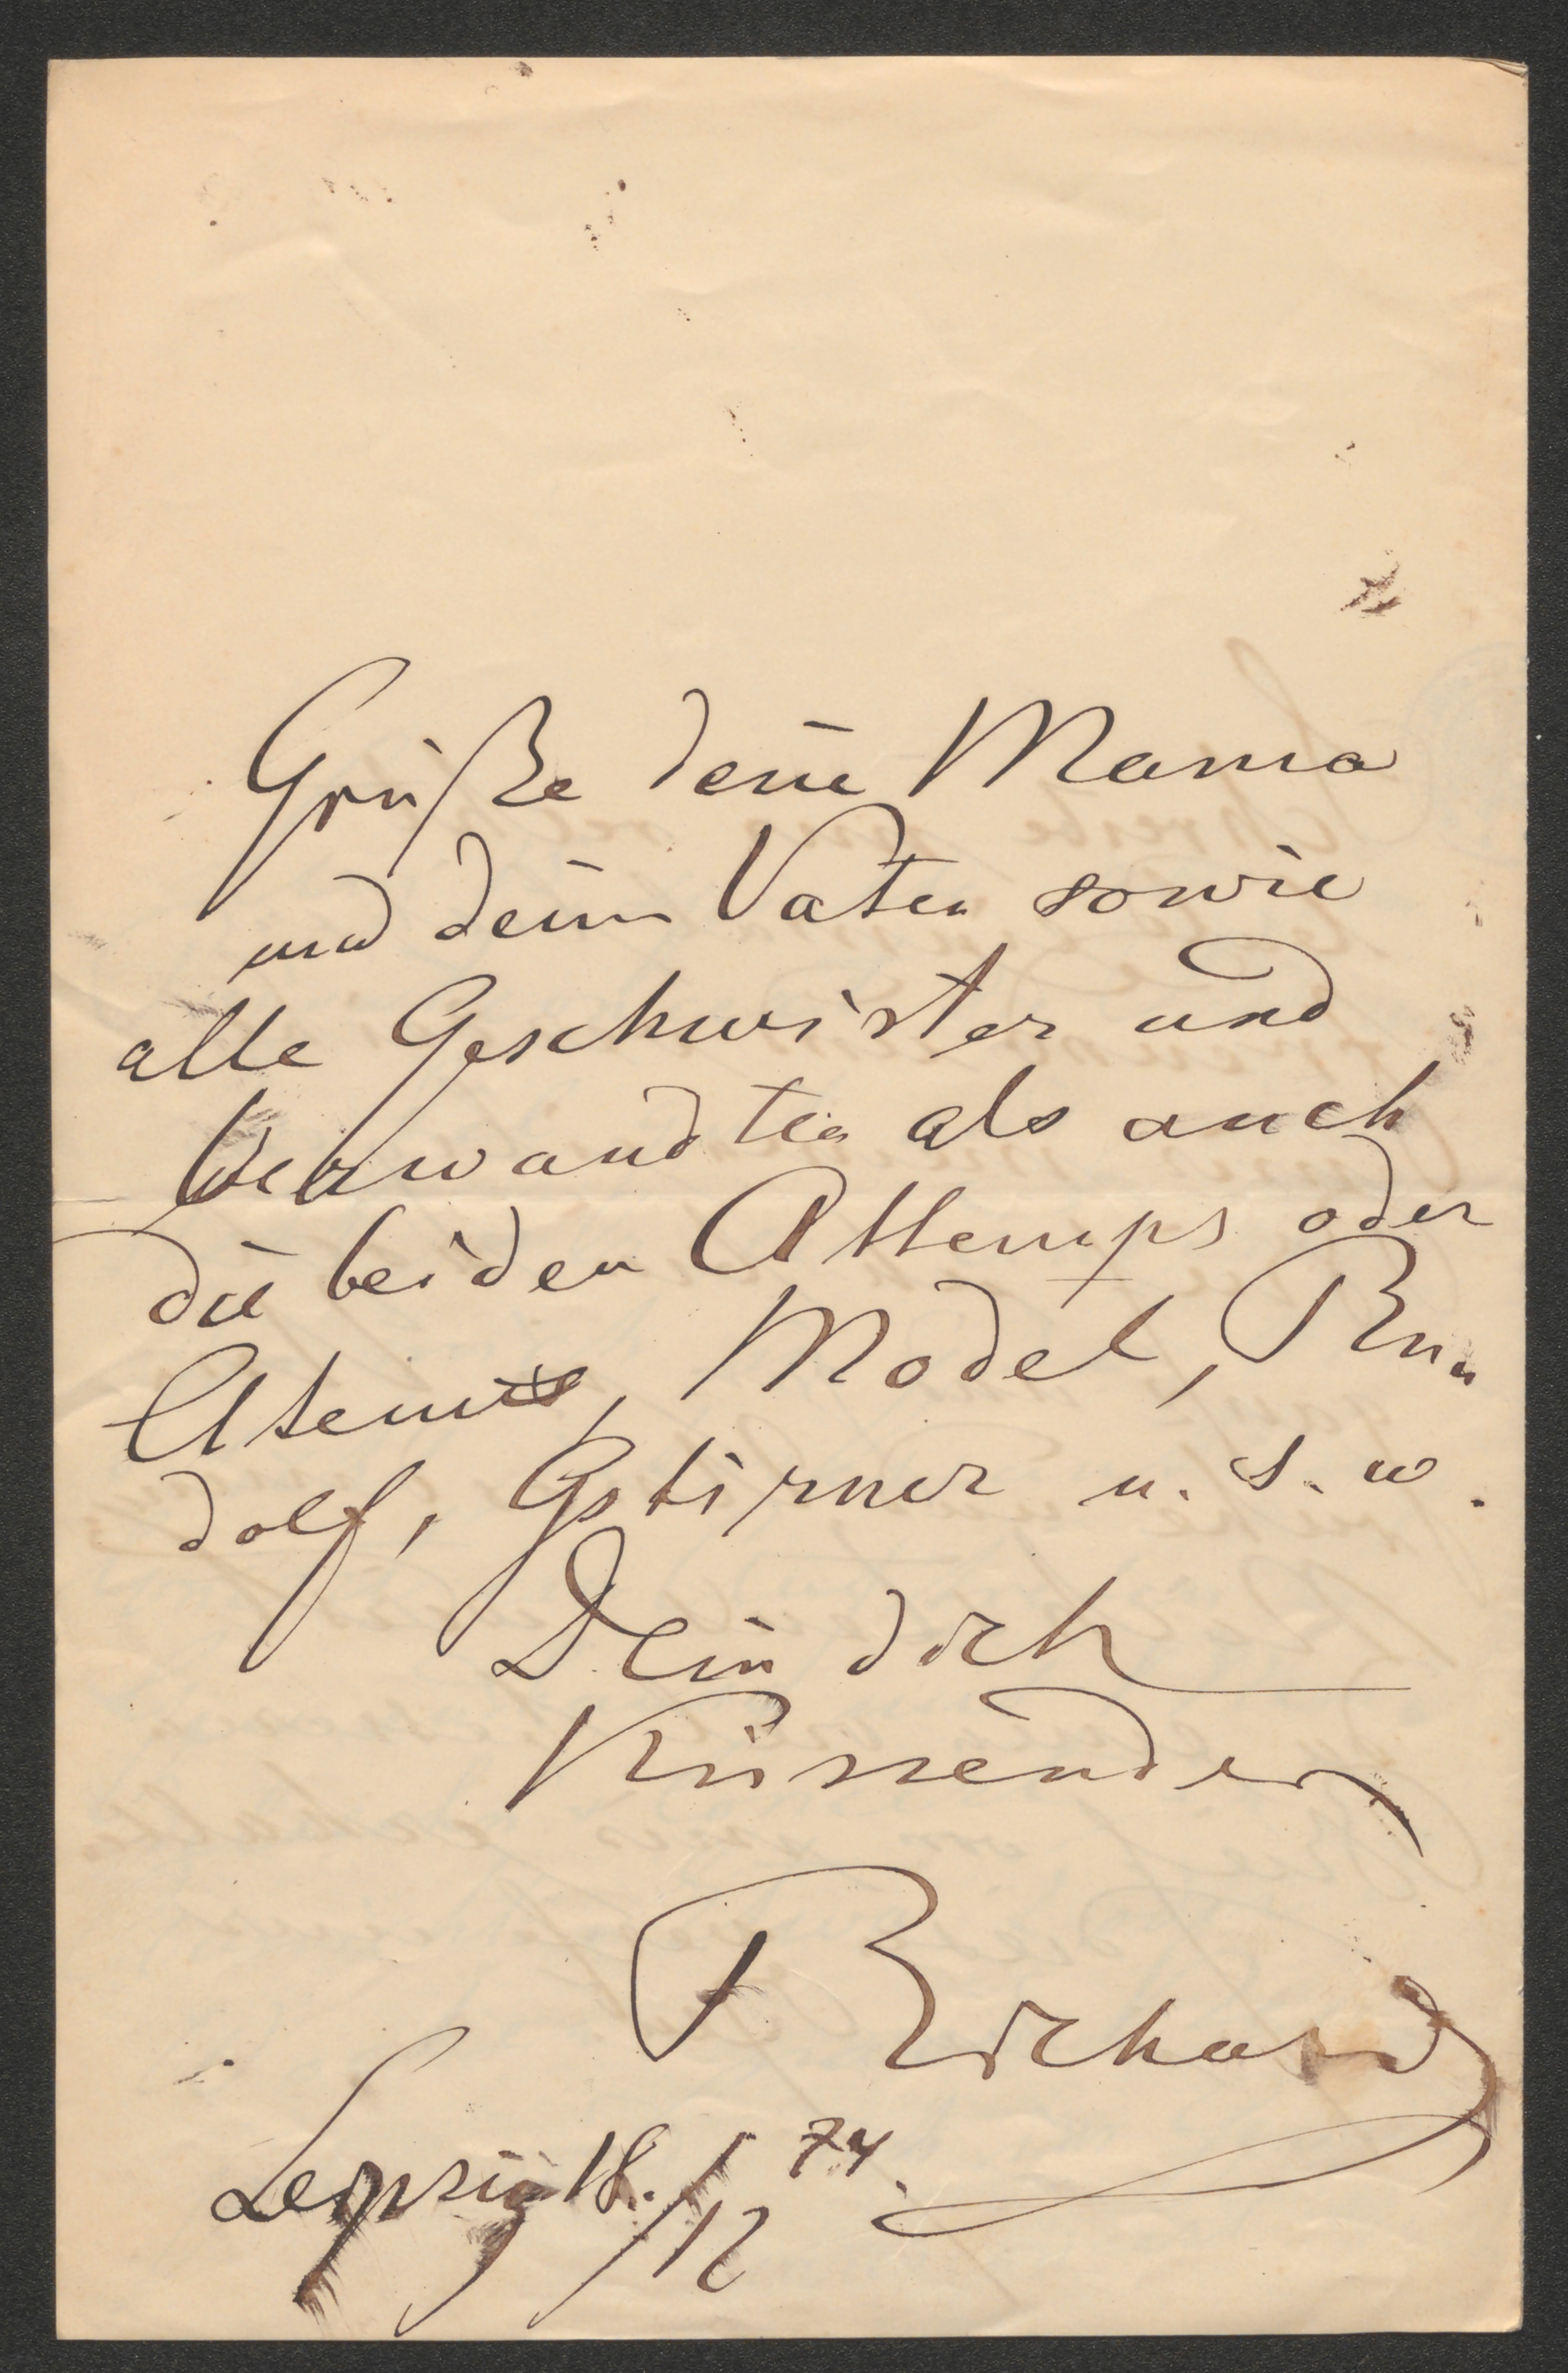 Grüße deine Mama
und deinen Vater sowie
alle Geschwister und
Verwandten als auch
die beiden Attemps oder
Atems, Model, Ru-
dolf, Gstirner u. s. w.
Dein dich
Küssender
Richard
Leipzig 18./12 74.